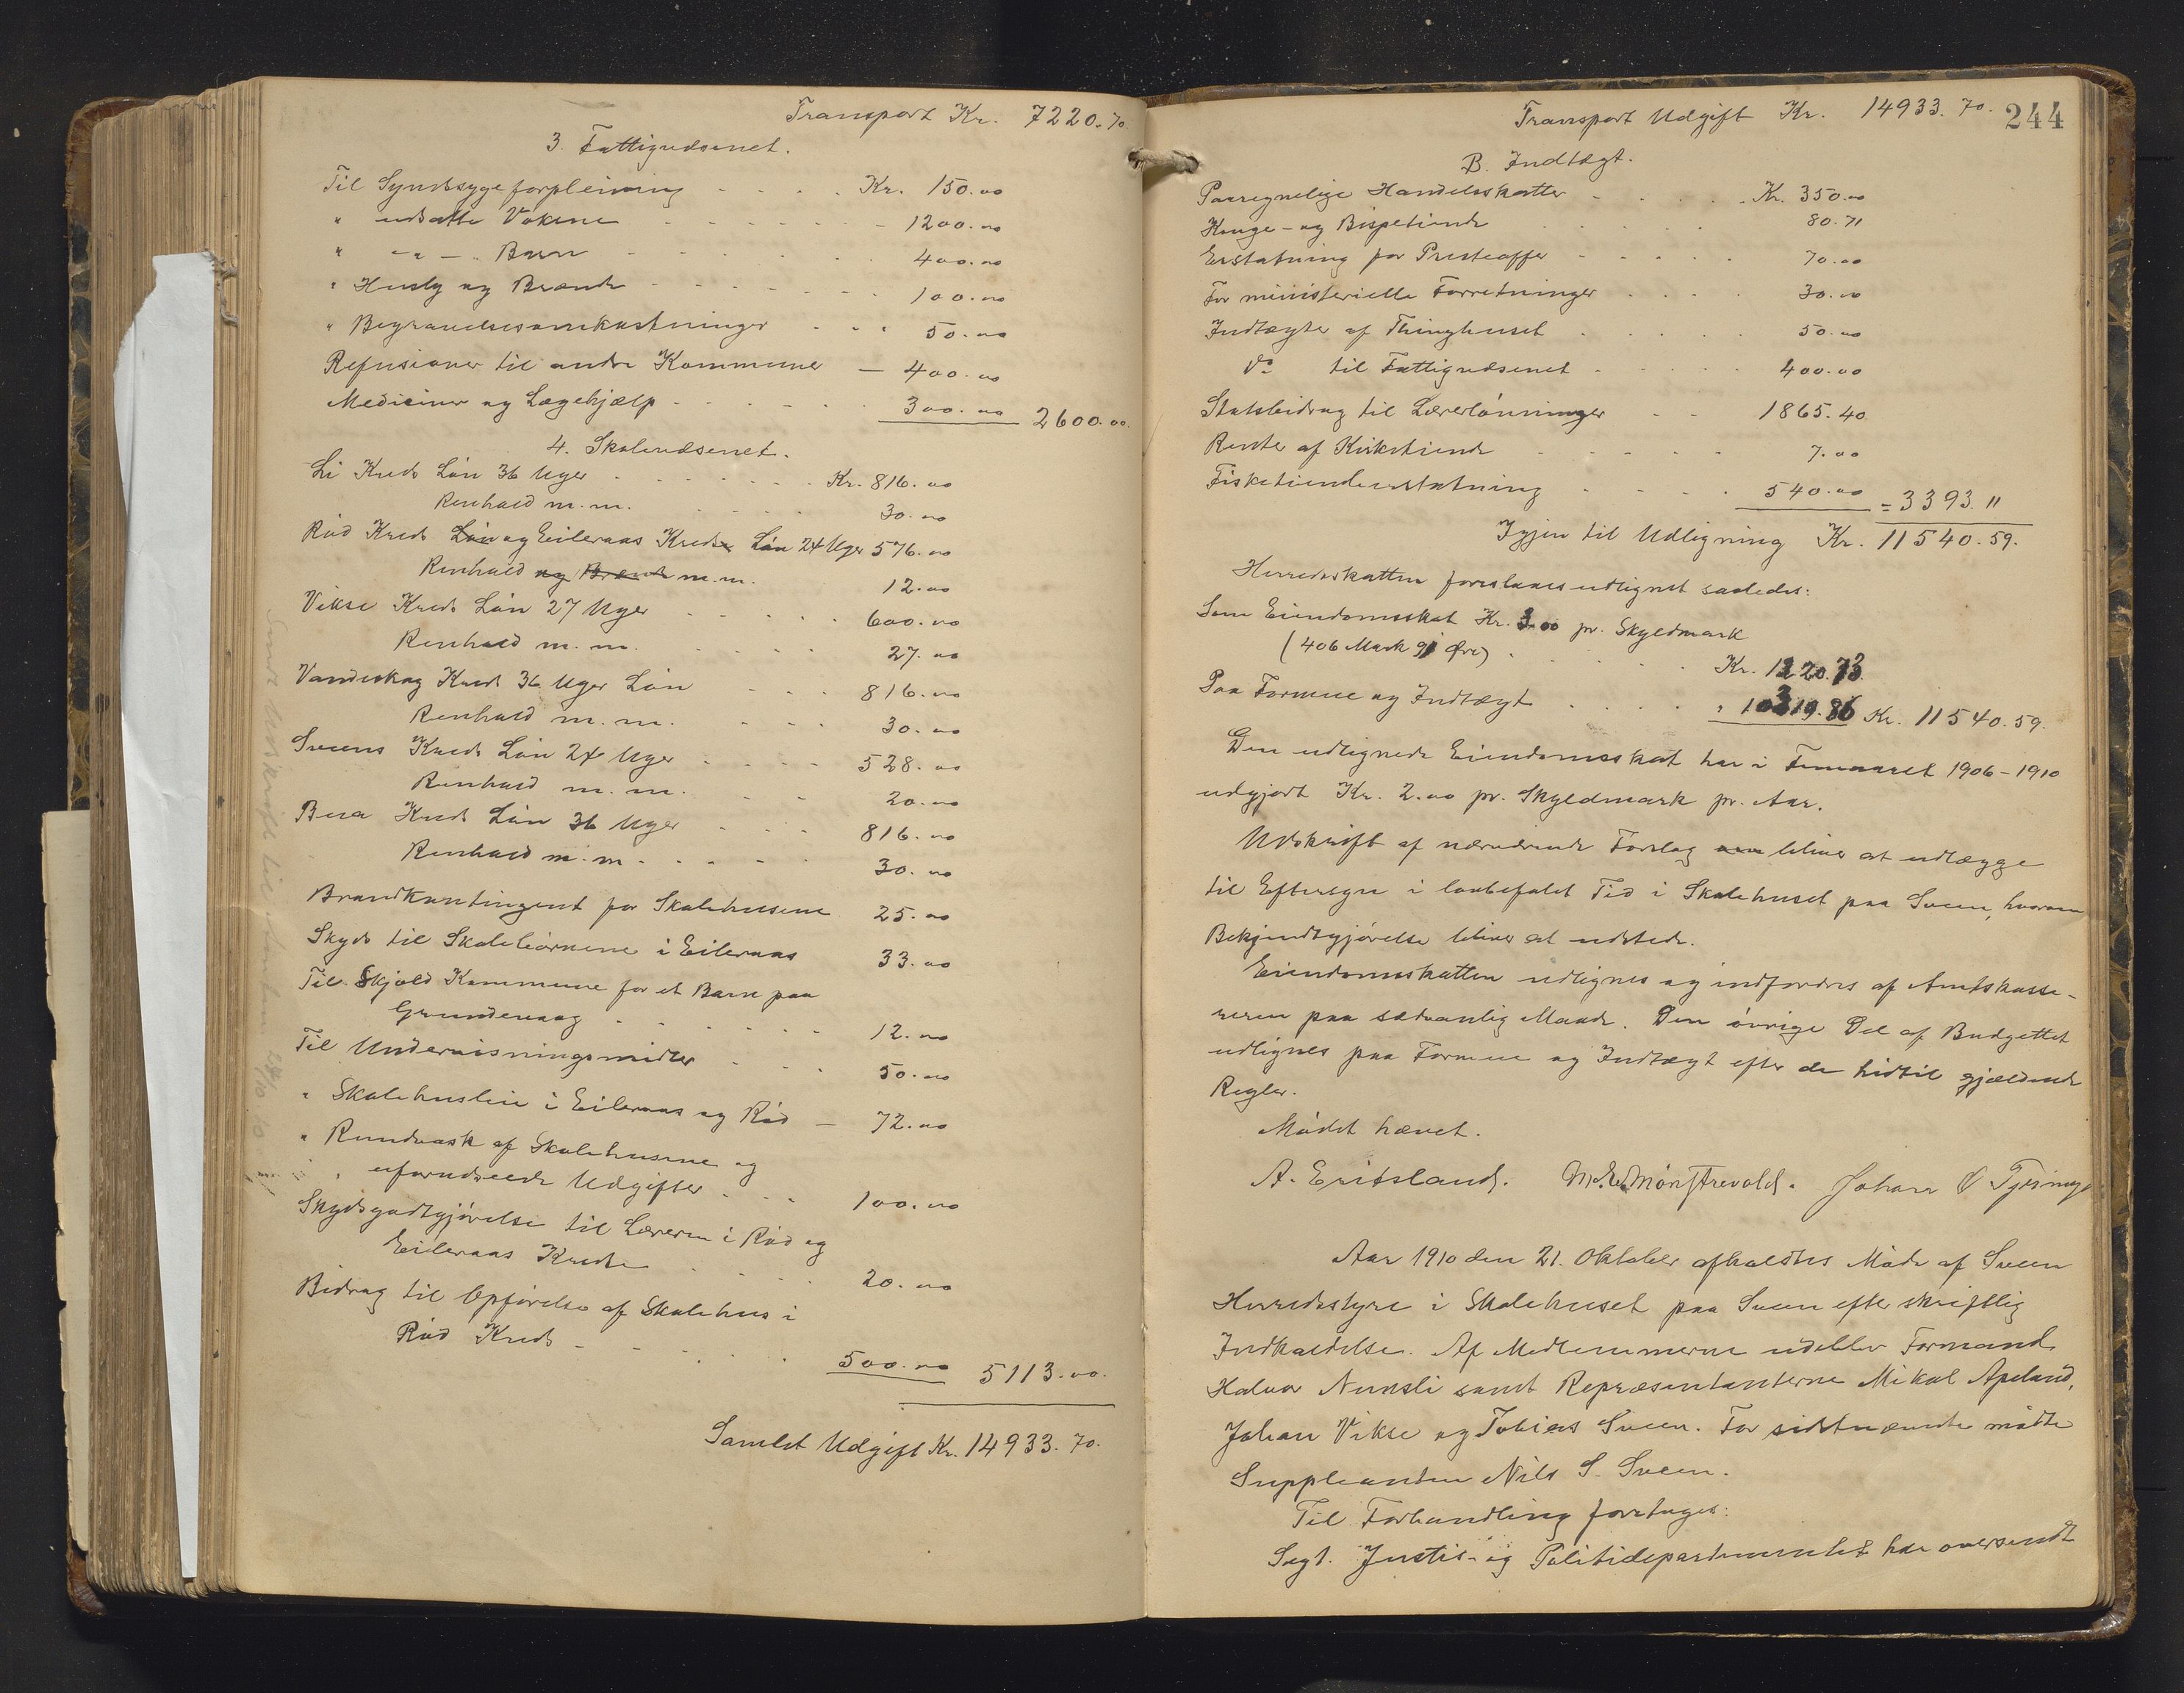 Transport Kr. 7220.70.
3. Fattigvæsenet.
Til Syndssygeforpleining - - - - Kr. 150.00
" udsatte Voksne - - - - - - 1200.00
" - " - . Børn - - - - - - 400.00
" Husly og Brænde - - - - - - 100.00
" Begravelsesomkostninger - - - 50.00
Refusioner til andre Kommuner - 400.00
Mediciner og Lægehjælp - - - - - 300.00 2600.00.
4. Skolevæsenet.
Li Kreds Løn 36 Uger - - - - - - Kr. 816.00
Renhold m.m. - - - - 30.00
Rød Kreds Løn og Eileraas Kreds Løn 24 Uger 576.00
Renhold og Brænde m.m. 12.00
Vikse Kreds Løn 27 Uger - - - - - 600.00
Renhold m.m. - - - - 27.00
Vandeskog Kreds 36 Uger Løn - - - 816.00
Renhold m.m. - - - 30.00
Sveens Kreds Løn 24 Uger - - - - 528.00
Renhold m.m. - - - 20.00
Bua Kreds Løn 36 Uger - - - - 816.00
Renhold m.m. - - - - 30.00
Brandkontingent for Skolehusene 25.00
Skyds til Skolebørnene i Eileraas 33.00
Til Skjold Kommune for et Barn paa
Grundevaag - - - - - - 12.00
Til Undervisningsmidler - - - 50.00
" Skolehusleie i Eileraas og Rød - 72.00
" Rundvask af Skolehusene og
" uforudseede Udgifter - - - 100.00
Skydsgodtgjørelse til Læreren i Rød og
Eileraas Kredse - - - - 20.00
Bidrag til Opførelse af Skolehus i
Rød Kreds - - - - - - 500.00 5113.00.
Samlet Udgift Kr. 14933.70.
244
Transport Udgift Kr. 14933.70.
B. Indtægt.
Paaregnelige Handelsskatter - - - - Kr. 350.00
Konge- og Bispetiende - - - - - 80.71
Erstatning for Presteoffer - - - - - 70.00
For ministerielle Forretninger - - - - 30.00
Indtægter af Thinghuset - - - - - 50.00
Do til Fattigvæsenet - - - - - 400.00
Statsbidrag til Lærerlønninger - - 1865.40
Renter af Kirketiende - - - - - 7.00
Fisketiendeerstatning - - - - 540.00 = 3393.11
Igjen til Udligning Kr. 11540.59.
Herredsskatten foreslaaes udlignet saaledes:
Som Eiendomsskat Kr. 3.00 pr. Skyldmark
(406 Mark 91 Øre) - - - - - Kr. 1220.73
Paa Formue og Indtægt - - - - " 10319.86 Kr. 11540.59.
Den udlignede Eiendomsskat har i Femaaret 1906-1910
udgjort Kr. 2.00 pr. Skyldmark pr. Aar.
Udskrift af nærværende Forslag bliver at udlægge
til Eftersyn i lovbefalet Tid i Skolehuset paa Sveen, hvorom
Bekjendtgjørelse bliver at udstede.
Eiendomsskatten udlignes og indfordres af Amtskasse-
reren paa sædvanlig Maade. Den øvrige Del af Budgettet
udlignes paa Formue og Indtægt efter de hidtil gjældende
Regler.
Mødet hævet.
A. Eritsland. M. E. Mønstrevold. Johan
Aar 1910 den 21. Oktober afholdtes Møde af Sveen
Herredsstyre i Skolehuset paa Sveen efter skriftlig
Indkaldelse. Af Medlemmerne udeblev Formand
Halvor Nernsli samt Repræsentanterne Mikal Apeland,
Johan Vikse og Tobias Sveen. For sidstnævnte mødte
Suppleanten Nils S. Sveen.
Til Forhandling foretages:
Sag 1. Justis- og Politidepartementet har oversendt